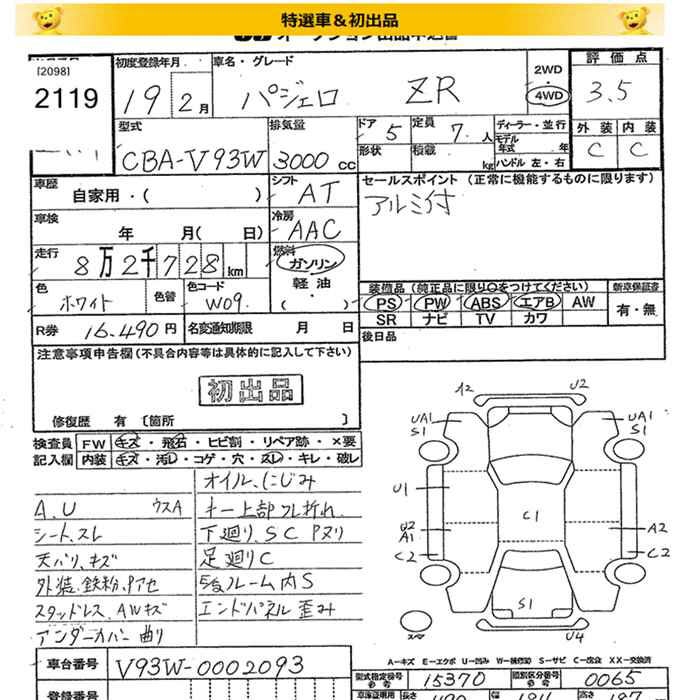 特選車＆初出品
[2098]
2119
初度登録年月
19年 2月
車名・グレード
パジェロ ZR
2WD
4WD
評価点
3.5
型式
CBA-V93W
排気量
3000 cc
ドア 5
定員 7 人
形状
積載 kg
ディーラー・並行
モデル年式 年
ハンドル 左・右
外装 内装
C C
車歴 自家用・( )
シフト AT
セールスポイント (正常に機能するものに限ります)
アルミ付
車検 年 月( 日)
冷房 AAC
走行 8万2千728km
燃料 ガソリン
軽油
・( )
色 ホワイト
色替
色コード W09
装備品 (純正品に限り○をつけてください)
新車保証書
PS PW ABS エアB AW
SR ナビ TV カワ
有・無
R券 16,490円
名変通知期限 月 日
後日品
注意事項申告欄 (不具合内容等は具体的に記入して下さい)
初出品
修復歴 有 〔箇所 〕
検査員 記入欄
FW キズ・飛石・ヒビ割・リペア跡・×要
内装 キズ・汚レ・コゲ・穴・スレ・キレ・破レ
オイル、にじみ
A,U ウスA
キー上部ツレ折れ
シート、スレ
下廻り、SC Pヌリ
天バリ、キズ
足廻りC
外装、鉄粉、Pアセ
スタッドレス、AWキズ
エンドパネル歪み
アンダーカバー曲り
A2 U2
UA1 S1
UA1 S1
U1
C1
U2 A1
A2
C2
C2
S1
U4
スペ
A—キズ E—エクボ U—凹み W—補修跡 S—サビ C—腐食 X X—交換済
車台番号 V93W-0002093
型式指定番号 15370
類別区分番号 0065
登録番号
長さ